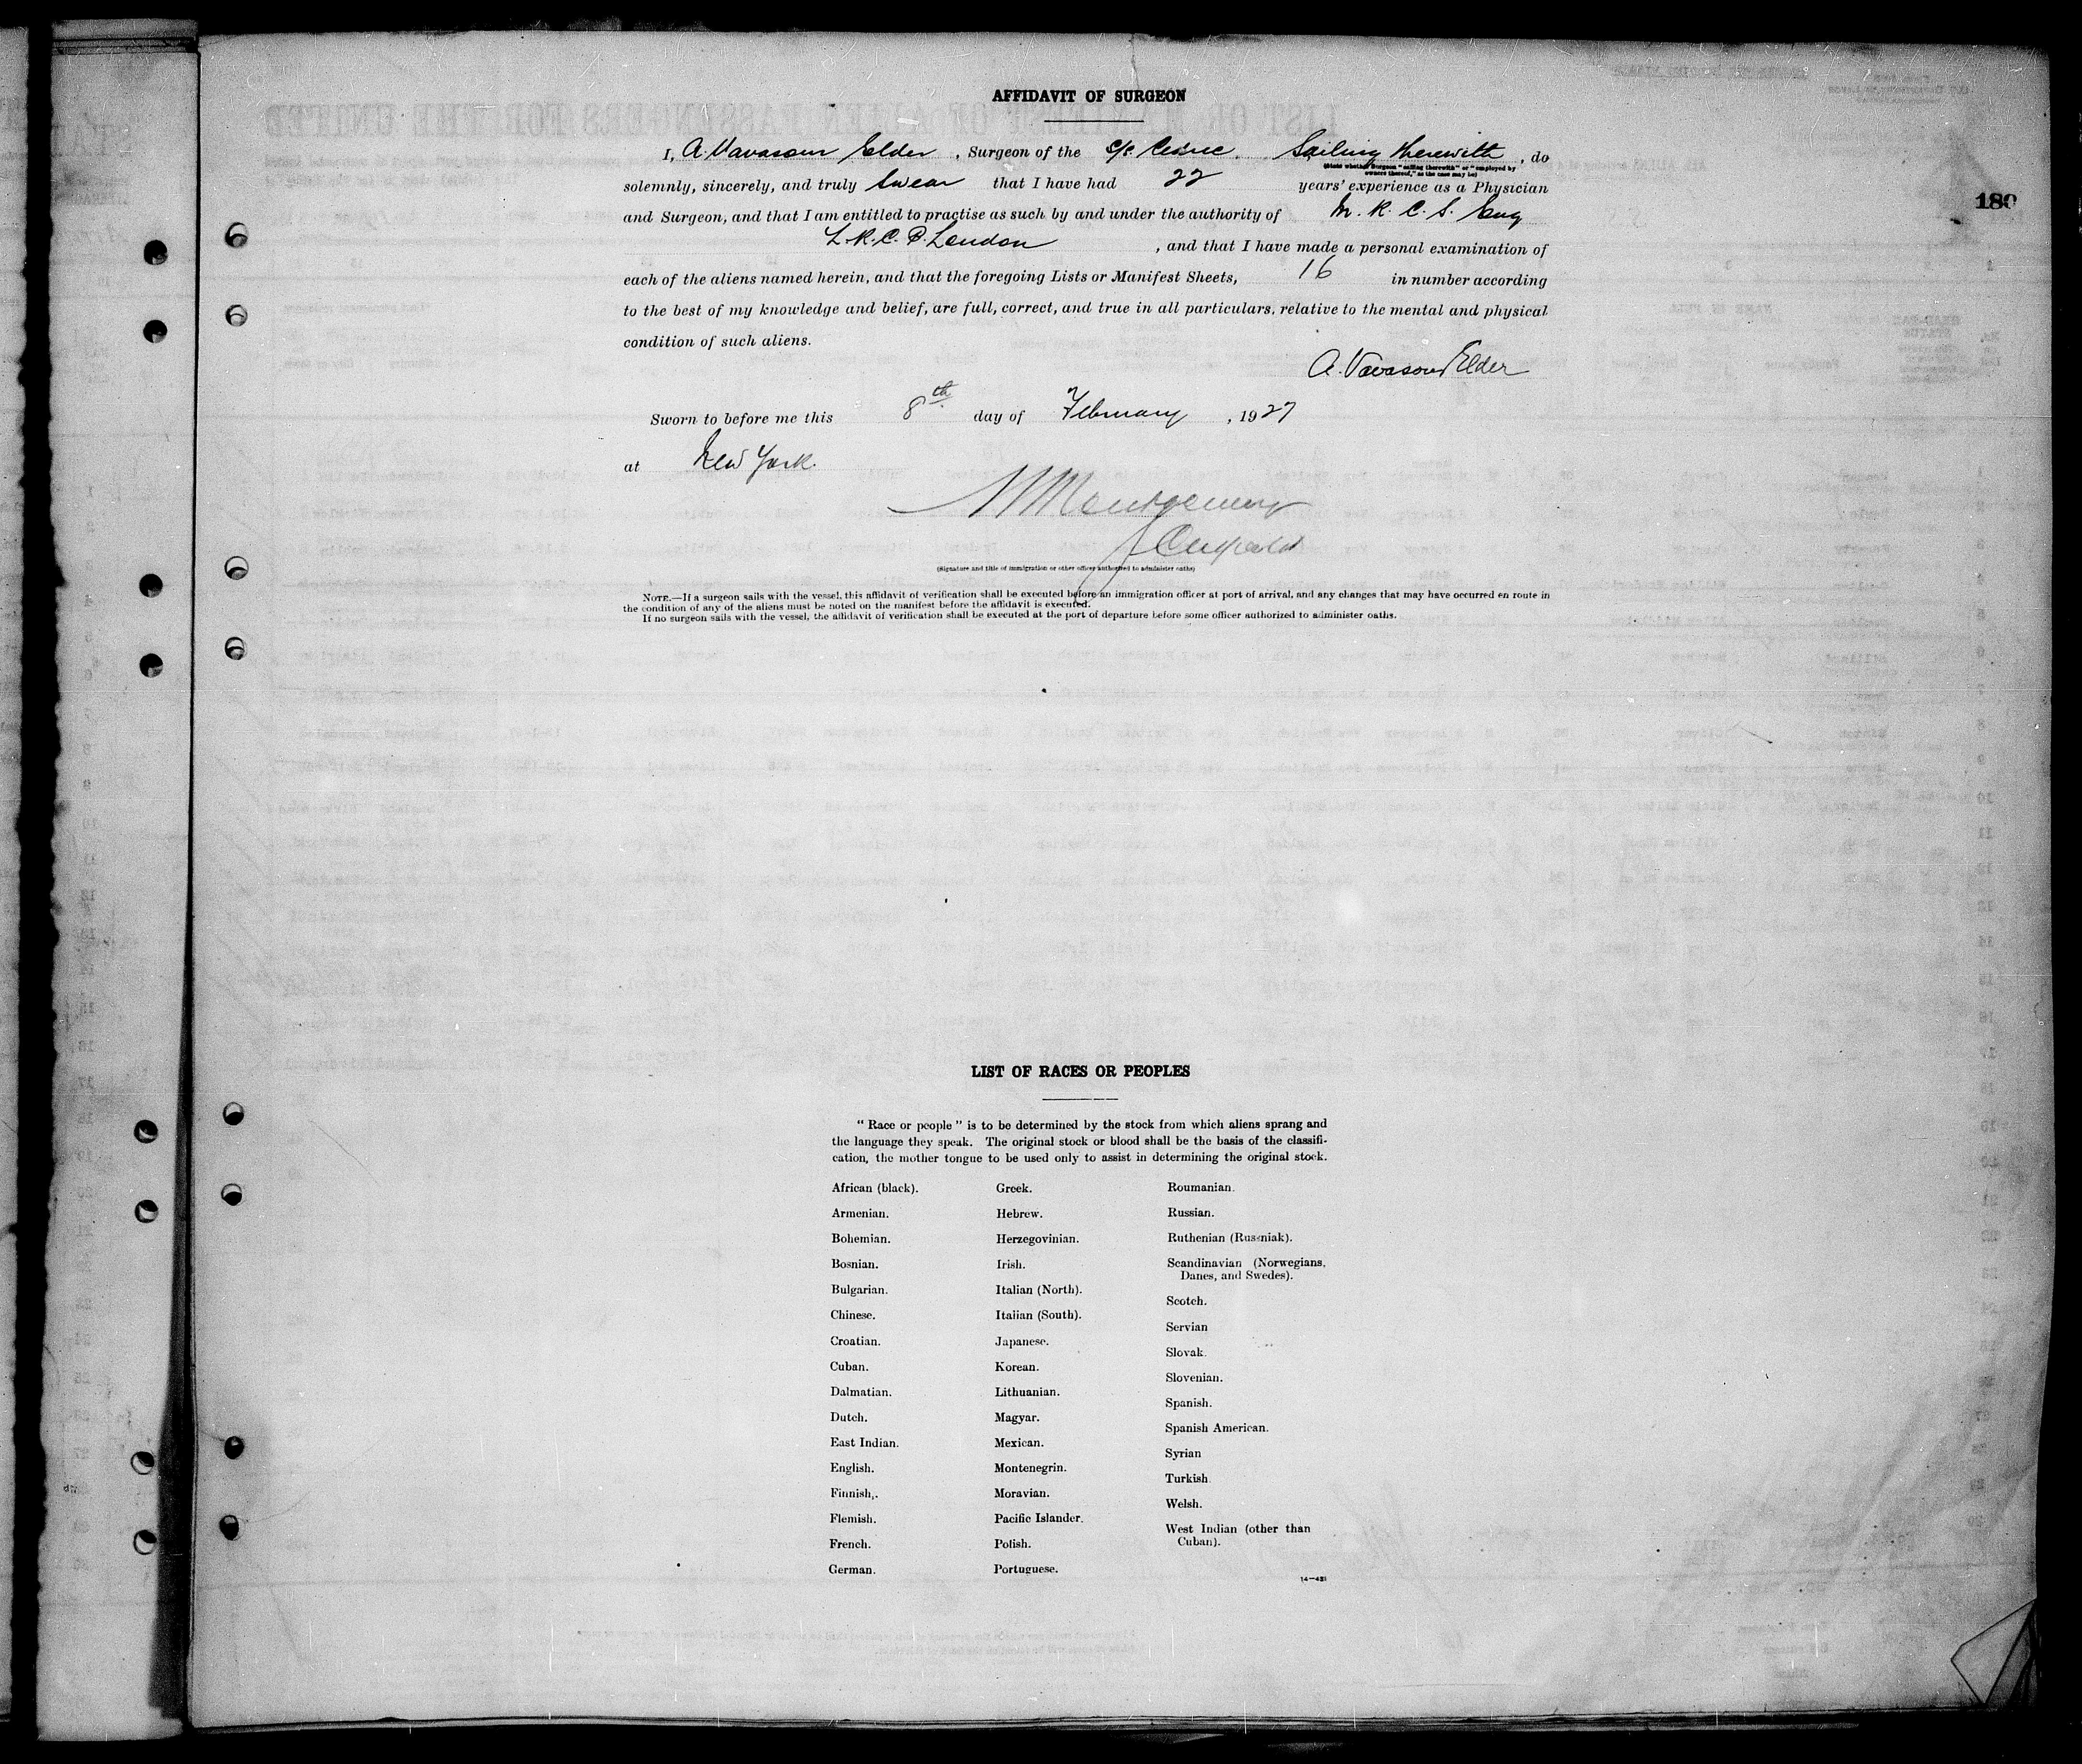 AFFIDAVIT OF SURGEON
I, A. Vavasour Elder, Surgeon of the S/S Cedric. Sailing herewith, do
(State whether Surgeon "sailing therewith" or "employed by
owners thereof," as the case may be)
solemnly, sincerely, and truly swear that I have had 22 years' experience as a Physician
and Surgeon, and that I am entitled to practise as such by and under the authority of M. R. C. S. Eng
L.R.C.P. London, and that I have made a personal examination of
each of the aliens named herein, and that the foregoing Lists or Manifest Sheets, 16 in number according
to the best of my knowledge and belief, are full, correct, and true in all particulars, relative to the mental and physical
condition of such aliens.
A. Vavasour Elder
Sworn to before me this 8th day of February, 1927
at New York.
Montgomery
(Signature and title of immigration or other officer authorized to administer oaths)
NOTE.—If a surgeon sails with the vessel, this affidavit of verification shall be executed before an immigration officer at port of arrival, and any changes that may have occurred en route in
the condition of any of the aliens must be noted on the manifest before the affidavit is executed.
If no surgeon sails with the vessel, the affidavit of verification shall be executed at the port of departure before some officer authorized to administer oaths.
180
LIST OF RACES OR PEOPLES
"Race or people" is to be determined by the stock from which aliens sprang and
the language they speak. The original stock or blood shall be the basis of the classifi-
cation, the mother tongue to be used only to assist in determining the original stock.
African (black).
Armenian.
Bohemian.
Bosnian.
Bulgarian.
Chinese.
Croatian.
Cuban.
Dalmatian.
Dutch.
East Indian.
English.
Finnish,.
Flemish.
French.
German.
Greek.
Hebrew.
Herzegovinian.
Irish.
Italian (North).
Italian (South).
Japanese.
Korean.
Lithuanian.
Magyar.
Mexican.
Montenegrin.
Moravian.
Pacific Islander.
Polish.
Portuguese.
Roumanian.
Russian.
Ruthenian (Russniak).
Scandinavian (Norwegians,
Danes, and Swedes).
Scotch.
Servian
Slovak.
Slovenian.
Spanish.
Spanish American.
Syrian
Turkish
Welsh.
West Indian (other than
Cuban).
14—421